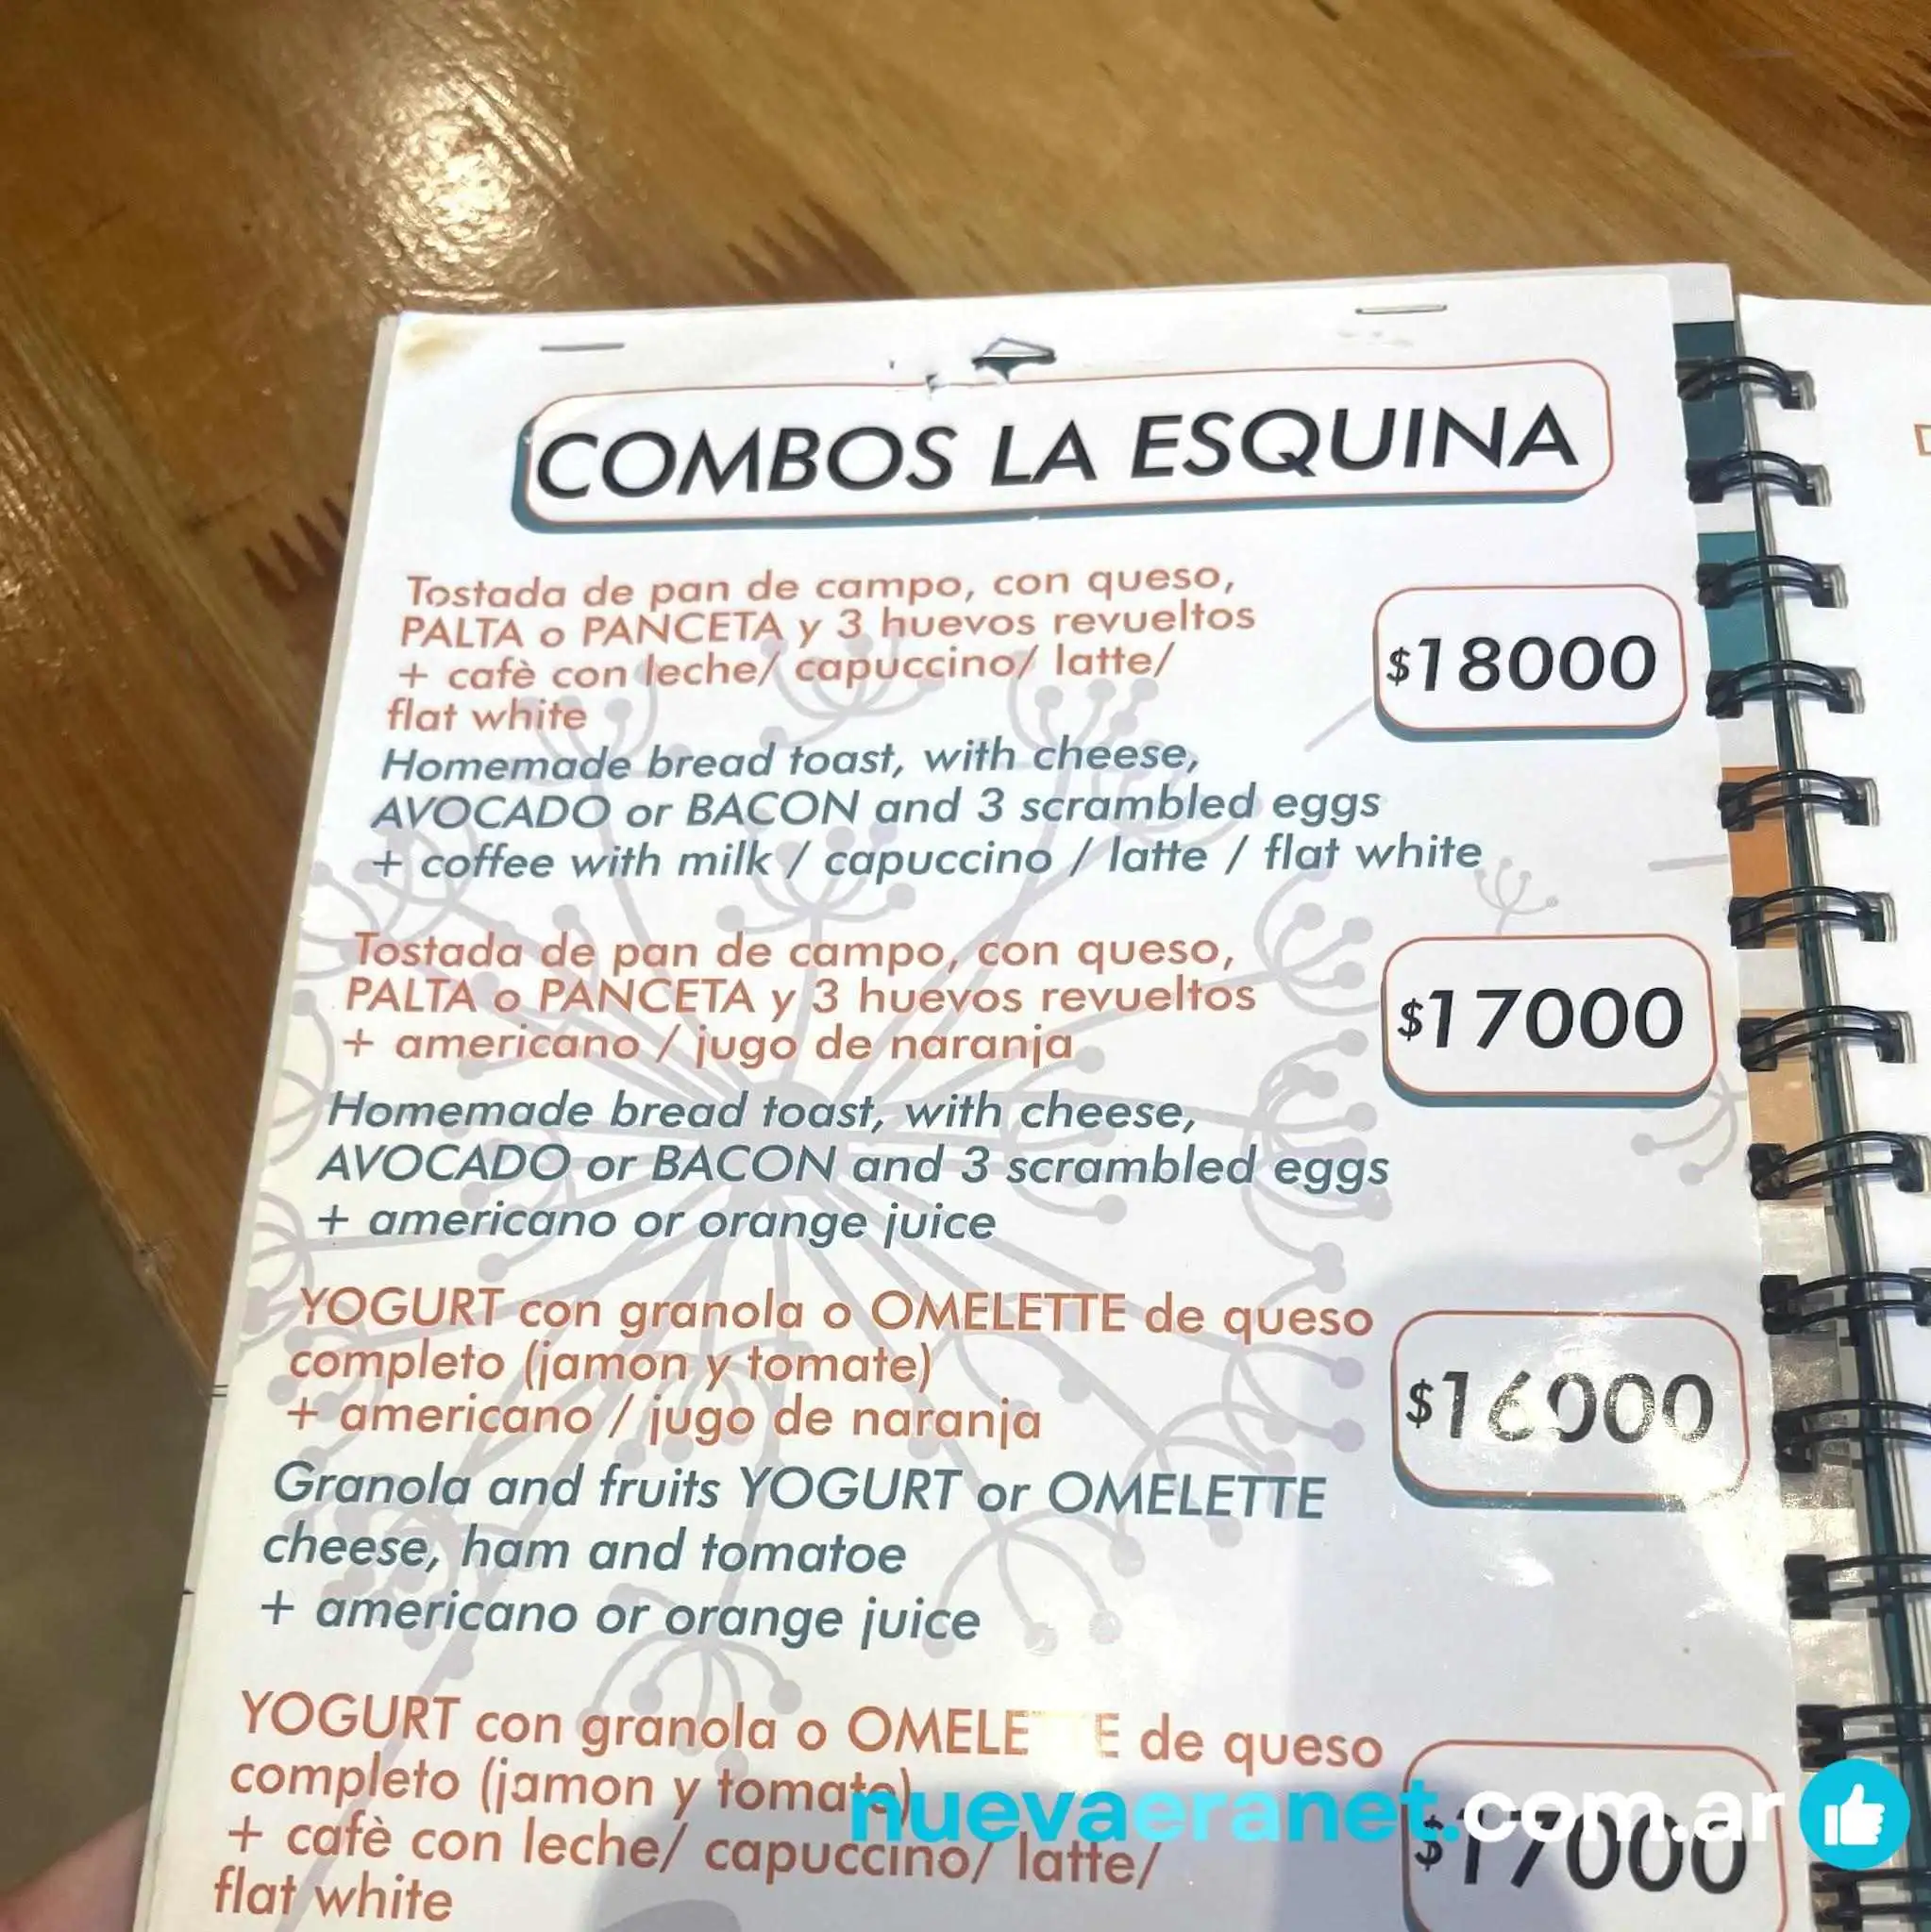 COMBOS LA ESQUINA
Tostada de pan de campo, con queso,
PALTA o PANCETA y 3 huevos revueltos
+ cafè con leche/ capuccino/ latte/
flat white
$18000
Homemade bread toast, with cheese,
AVOCADO or BACON and 3 scrambled eggs
+ coffee with milk / capuccino / latte / flat white
Tostada de pan de campo, con queso,
PALTA o PANCETA y 3 huevos revueltos
+ americano / jugo de naranja
$17000
Homemade bread toast, with cheese,
AVOCADO or BACON and 3 scrambled eggs
+ americano or orange juice
YOGURT con granola o OMELETTE de queso
completo (jamon y tomate)
+ americano / jugo de naranja
$16000
Granola and fruits YOGURT or OMELETTE
cheese, ham and tomatoe
+ americano or orange juice
YOGURT con granola o OMELETTE de queso
completo (jamon y tomate)
+ cafè con leche/ capuccino/ latte/
flat white
$17000
nuevaeranet.com.ar